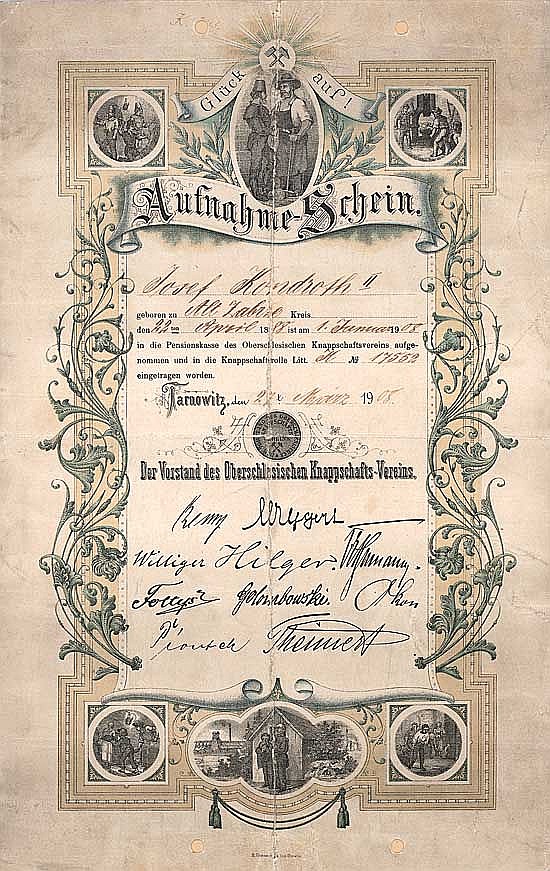 Glück auf!
Aufnahme-Schein.
Josef Kondroth II
geboren zu Alt Zabrze Kreis
den 22 ten April 18 ist am 1. Januar 1908
in die Pensionskasse des Oberschlesischen Knappschaftsvereins aufge-
nommen und in die Knappschaftsrolle Litt. K № 17552
eingetragen worden.
Tarnowitz, den 27 März 1908.
Der Vorstand des Oberschlesischen Knappschafts-Vereins.
Remy
Williger Hilger.
Golombowski. Okon
Piontek Theinert